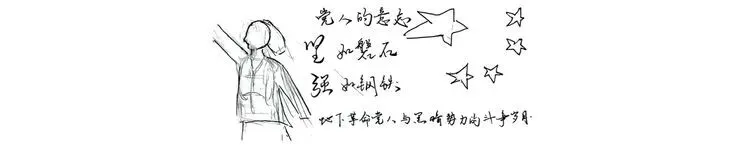 党人的意志
坚如磐石
强如钢铁
地下革命党人与黑暗势力的斗争岁月